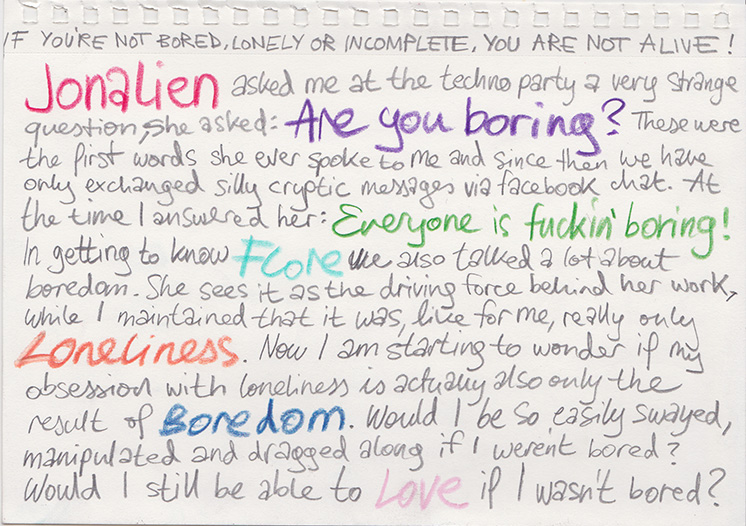 IF YOU'RE NOT BORED, LONELY OR INCOMPLETE, YOU ARE NOT ALIVE!
Jonalien asked me at the techno party a very strange
question, she asked: Are you boring? These were
the first words she ever spoke to me and since then we have
only exchanged silly cryptic messages via facebook chat. At
the time I answered her: Everyone is fuckin' boring!
In getting to know Flore we also talked a lot about
boredom. She sees it as the driving force behind her work,
while I maintained that it was, like for me, really only
Loneliness. Now I am starting to wonder if my
obsession with loneliness is actually also only the
result of Boredom. Would I be so easily swayed,
manipulated and dragged along if I weren't bored?
Would I still be able to Love if I wasn't bored?